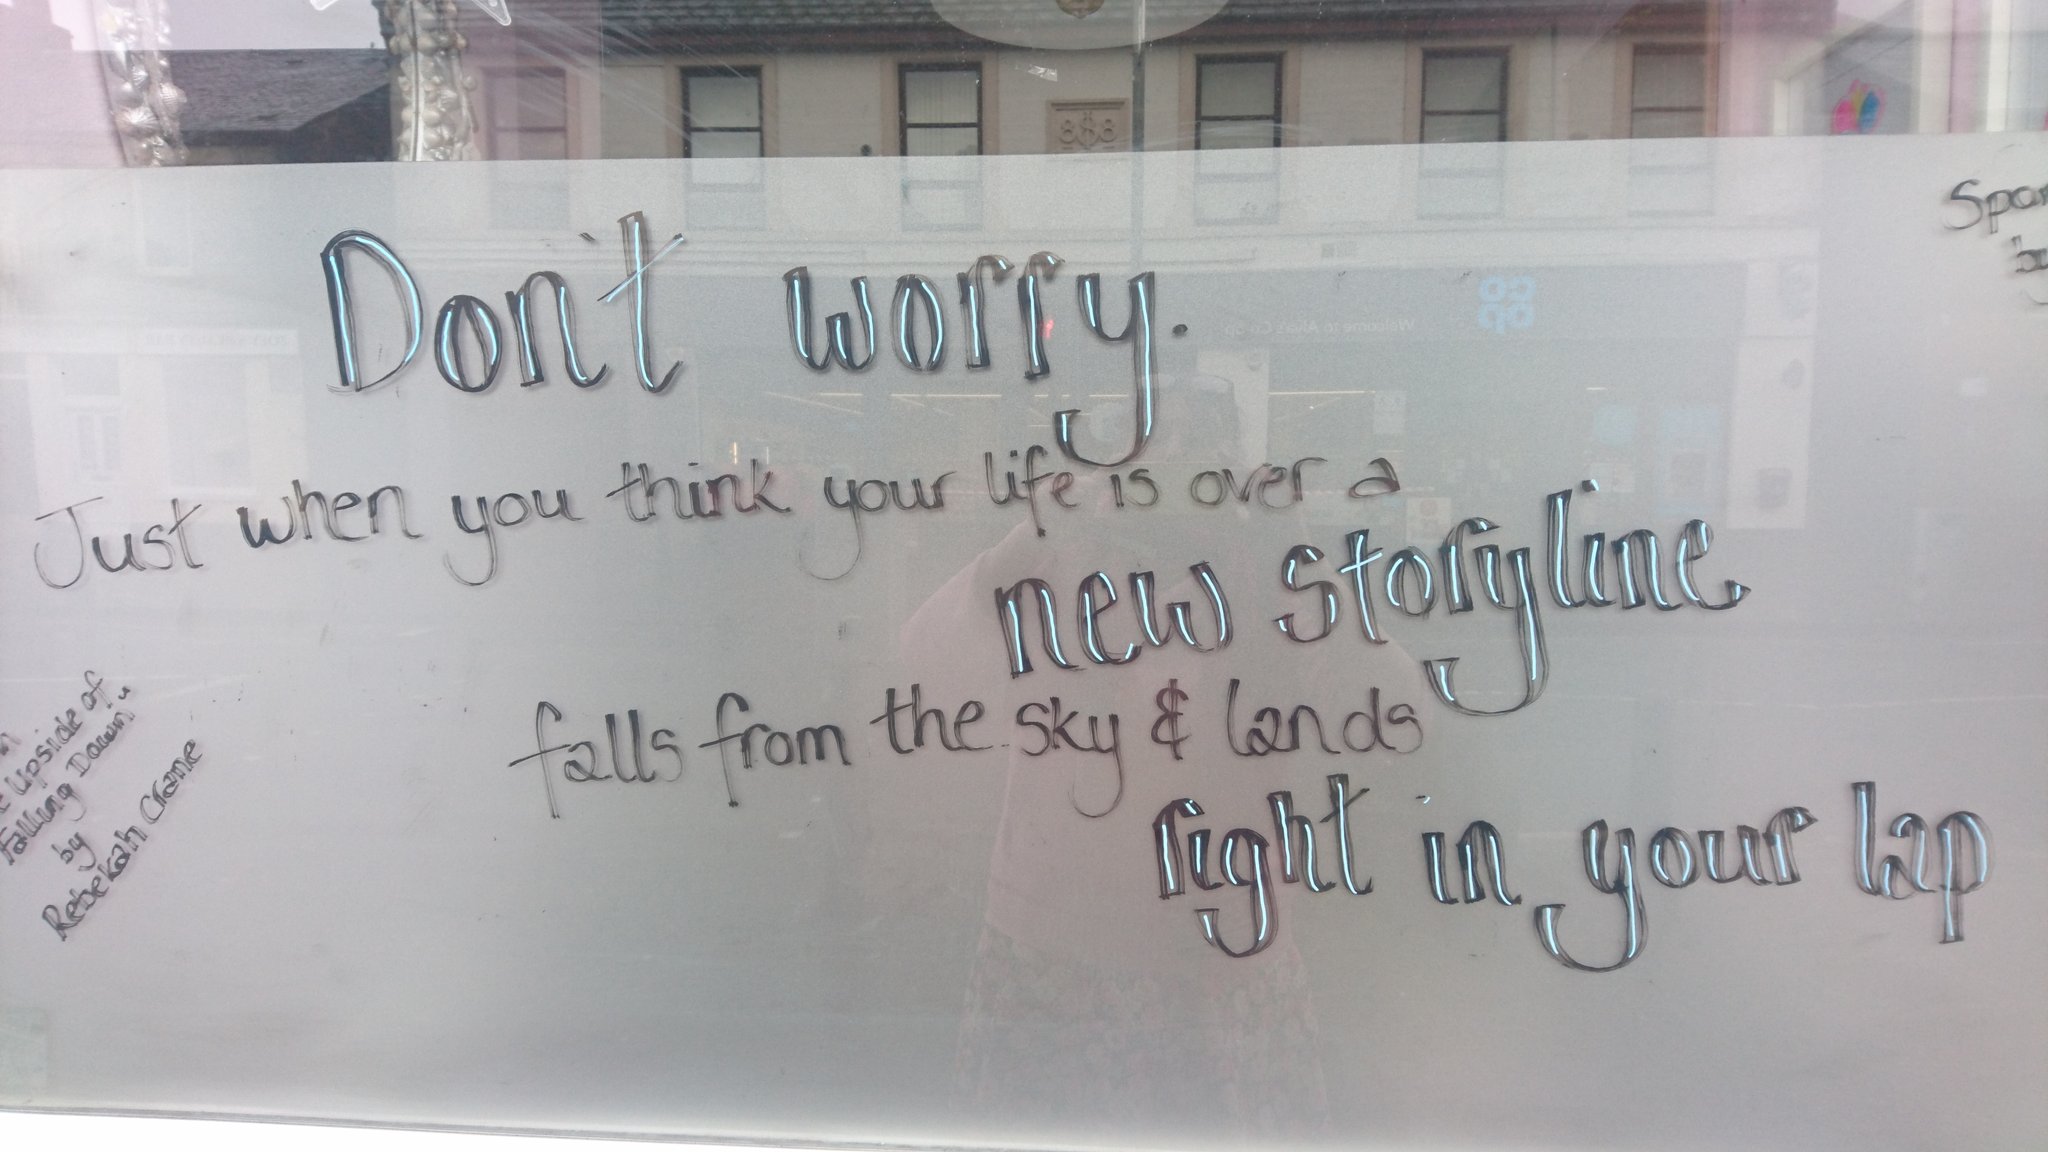 8 8
Don't worry.
Just when you think your life is over a
new storyline
falls from the sky & lands
right in your lap
Upside of
Falling Down"
by
Rebekah Crane
Welcome to Alva's Co-op
co
op